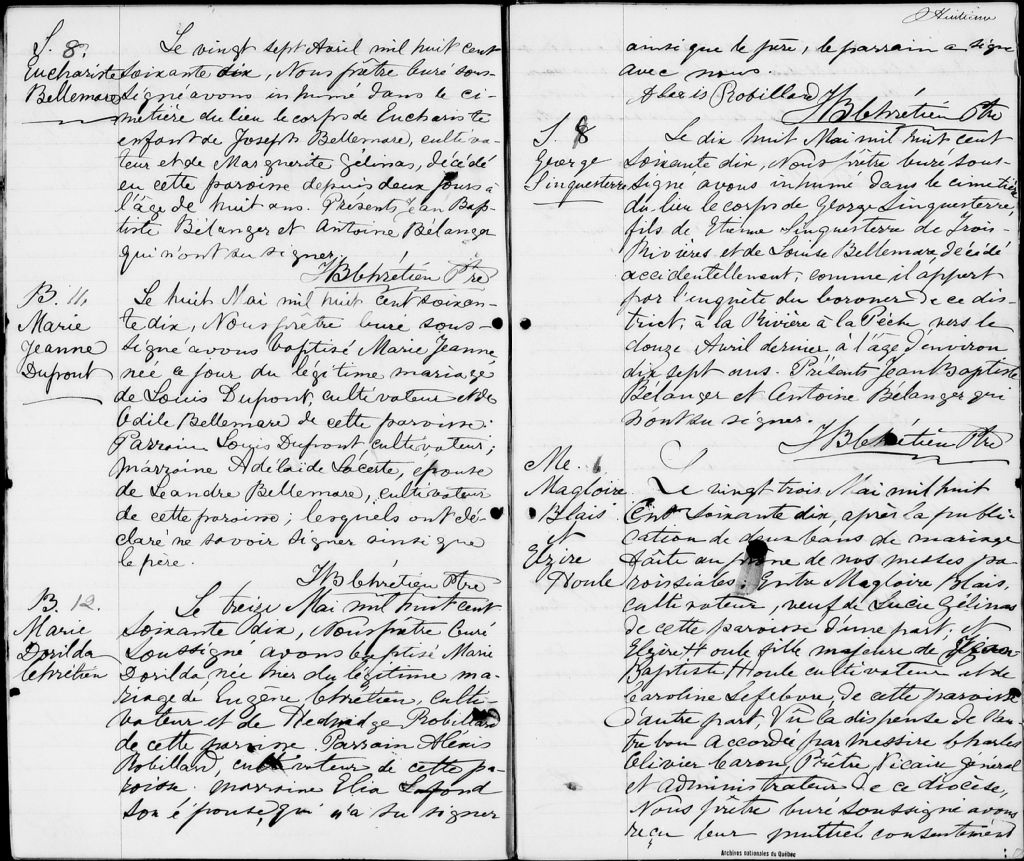 S. 8.
Euchariste
Bellemare
Le vingt sept Avril mil huit cent
soixante dix, Nous prêtre curé sous-
signé avons inhumé dans le ci-
metière du lieu le corps de Euchariste
enfant de Joseph Bellemare, cultiva-
teur et de Marguerite Gelinas, décédé
en cette paroisse depuis deux jours à
l'âge de huit ans. Présents Jean Bap-
tiste Bélanger et Antoine Bélanger
qui n'ont su signer.
JB Chrétien Ptre
B. 11,
Marie
Jeanne
Dupont
Le huit Mai mil huit cent soixan-
te dix, Nous prêtre curé sous-
signé avons baptisé Marie Jeanne
née ce jour du légitime mariage
de Louis Dupont, cultivateur et de
Odile Bellemare de cette paroisse.
Parrain Louis Dupont cultivateur;
marraine Adélaïde Lacerte, épouse
de Leandre Bellemare, cultivateur
de cette paroisse; lesquels ont dé-
claré ne savoir signer ainsi que
le père.
JB Chrétien Ptre
B. 12.
Marie
Dorilda
Chrétien
Le treize Mai mil huit cent
soixante dix, Nous prêtre curé
soussigné avons baptisé Marie
Dorilda née hier du légitime ma-
riage de Eugène Chrétien, culti-
vateur et de Hedwidge Robillard
de cette paroisse. Parrain Aléxis
Robillard, cultivateur de cette pa-
roisse. marraine Elia Lafond
son épouse, qui n'a su signer
Huitième
ainsi que le père, le parrain a signé
avec nous.
Alexis Robillard
JB Chrétien Ptre
S. 8
George
Sinquesterre
Le dix huit Mai mil huit cent
soixante dix, Nous prêtre curé sous-
signé avons inhumé dans le cimetière
du lieu le corps de George Sinquesterre,
fils de Etienne Sinquesterre de Trois-
Rivières et de Louise Bellemare, décédé
accidentellement, comme il appert
par l'enquête du coroner de ce dis-
trict, à la Rivière à la Pêche vers le
douze Avril dernier à l'âge d'environ
dix sept ans. Présents Jean Baptiste
Bélanger et Antoine Bélanger qui
n'ont su signer.
JB Chrétien Ptre
Me. 6
Magloire
Blais
et
Elzire
Houle
Le vingt trois Mai mil huit
Cent soixante dix, après la publi-
cation de deux bans de mariage
faite au prône de nos messes pa-
roissiales. Entre Magloire Blais,
cultivateur, veuf de Lucie Gélinas
de cette paroisse d'une part; et
Elzire Houle fille majeure de Jean
Baptiste Houle cultivateur et de
Caroline Lefebvre de cette paroisse
d'autre part. Vu la dispense de l'au-
tre ban accordée par messire Charles
Olivier Caron, Prêtre, Vicaire général
et administrateur de ce diocèse,
Nous prêtre curé soussigné avons
reçu leur mutuel consentement
Archives nationales du Québec